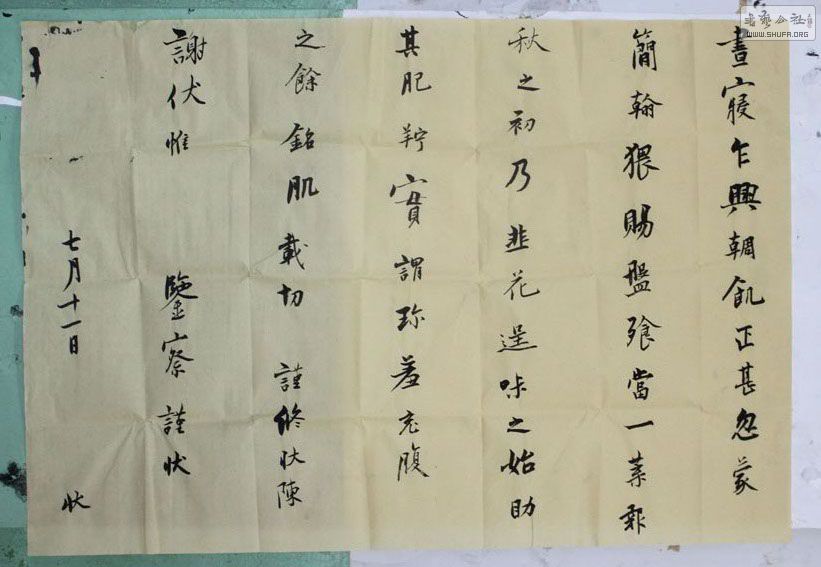 晝寢乍興輖飢正甚忽蒙
簡翰猥賜盤飧當一葉報
秋之初乃韭花逞味之始助
其肥羜實謂珍羞充腹
之餘銘肌載切 謹脩狀陳
謝伏惟 鑒察謹狀
七月十一日 狀
書藝公社
WWW.SHUFA.ORG